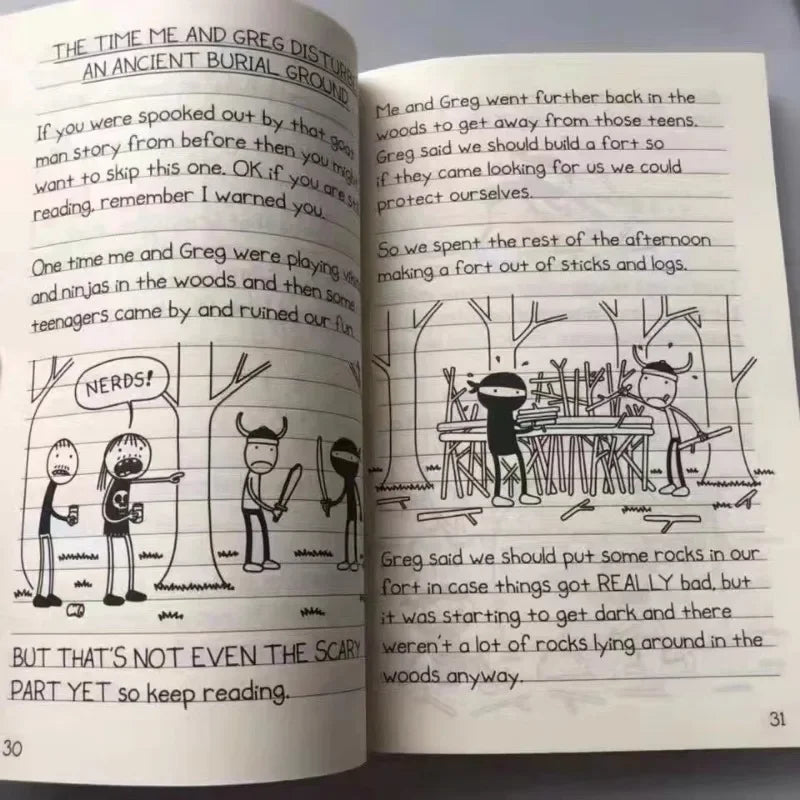 THE TIME ME AND GREG DISTURBE
AN ANCIENT BURIAL GROUND
If you were spooked out by that goat
man story from before then you might
want to skip this one. OK if you are sti
reading, remember I warned you.
One time me and Greg were playing
and ninjas in the woods and then some
teenagers came by and ruined our fun.
NERDS!
BUT THAT'S NOT EVEN THE SCARY
PART YET so keep reading.
30
Me and Greg went further back in the
woods to get away from those teens.
Greg said we should build a fort so
if they came looking for us we could
protect ourselves.
So we spent the rest of the afternoon
making a fort out of sticks and logs.
Greg said we should put some rocks in our
fort in case things got REALLY bad, but
it was starting to get dark and there
weren't a lot of rocks lying around in the
woods anyway.
31